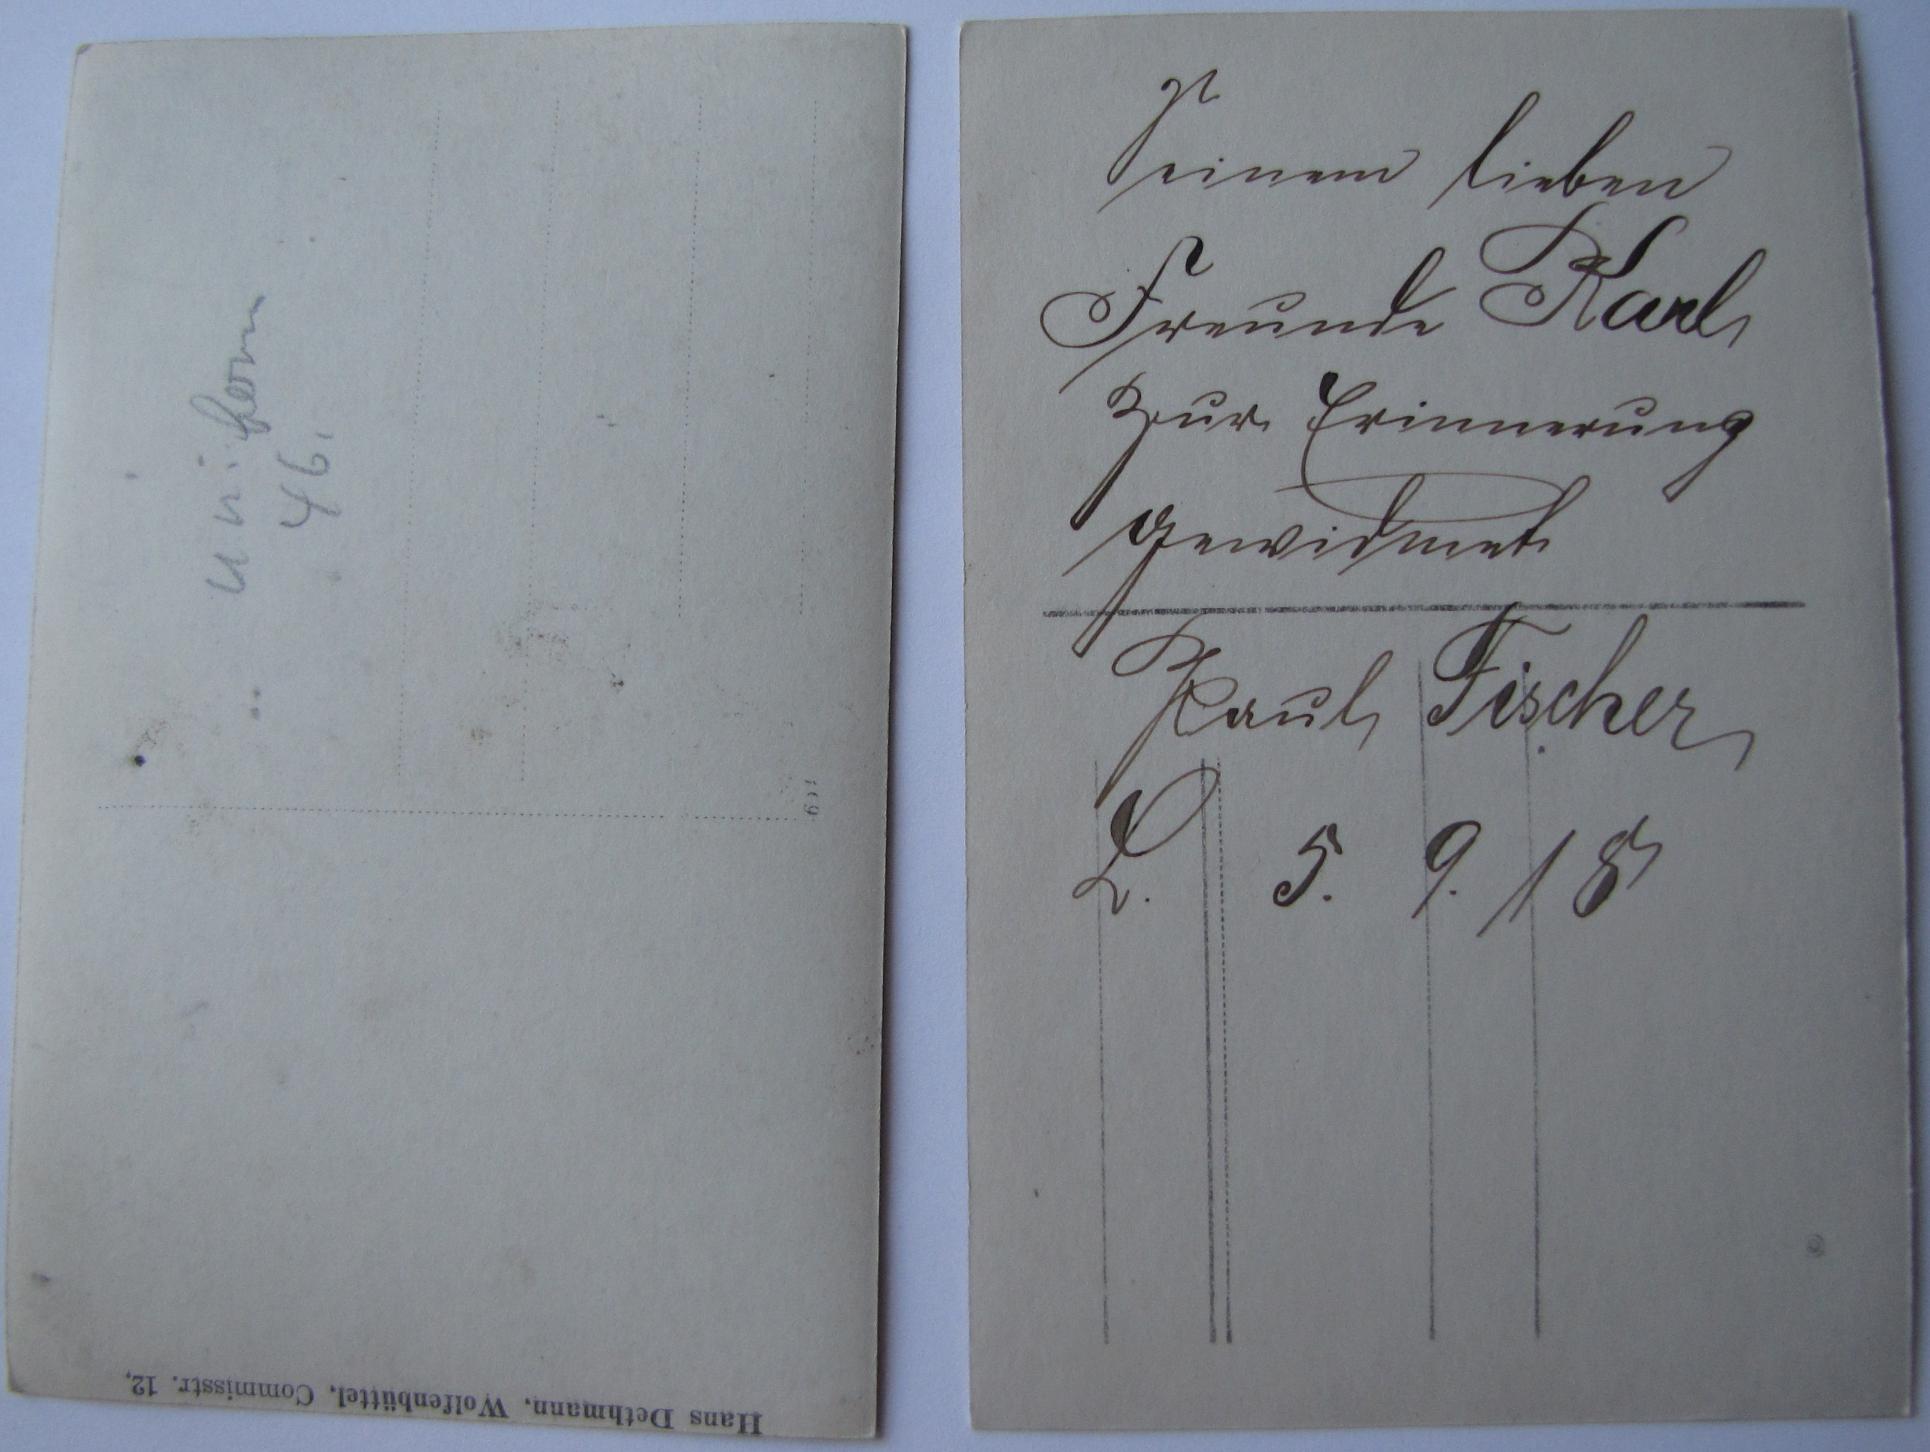 Uniform
46.
Hans Dethmann, Wolfenbüttel, Commisstr. 12.
Seinem lieben
Freunde Karl
Zur Erinnerung
gewidmet
Paul Fischer
L. 5. 9. 18